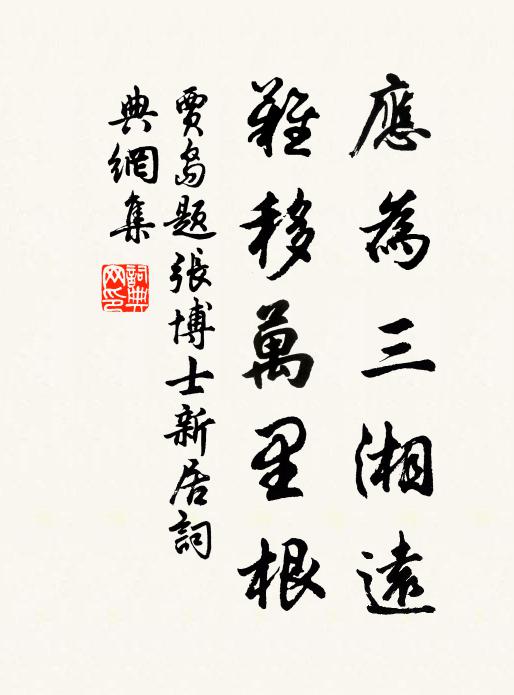 應為三湘遠
難移萬里根
賈島題張博士新居詞
典網集
詞典
網印